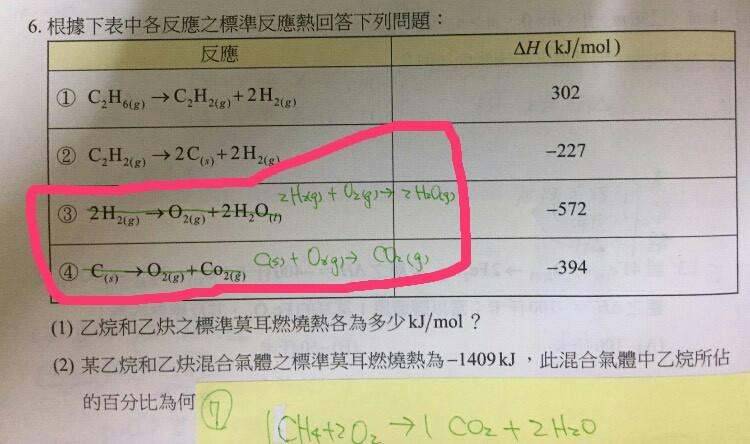 6. 根據下表中各反應之標準反應熱回答下列問題：
反應 ΔH (kJ/mol)
① C₂H₆(g) → C₂H₂(g) + 2H₂(g) 302
② C₂H₂(g) → 2C(s) + 2H₂(g) −227
2H₂(g) + O₂(g) → 2H₂O(g)
③ 2H₂(g) → O₂(g) + 2H₂O(l) −572
④ C(s) → O₂(g) + Co₂(g) C(s) + O₂(g) → CO₂(g) −394
(1) 乙烷和乙炔之標準莫耳燃燒熱各為多少 kJ/mol？
(2) 某乙烷和乙炔混合氣體之標準莫耳燃燒熱為 −1409 kJ，此混合氣體中乙烷所佔
的百分比為何
⑦ 1CH₄+2O₂ → 1CO₂ + 2H₂O